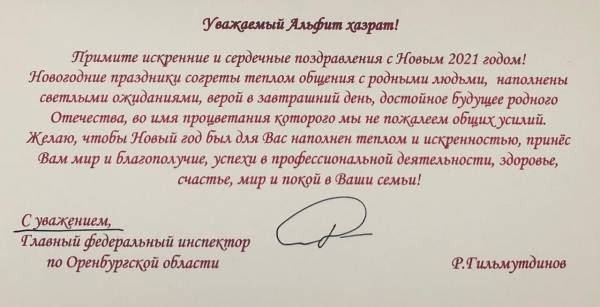 Уважаемый Альфит хазрат!
Примите искренние и сердечные поздравления с Новым 2021 годом!
Новогодние праздники согреты теплом общения с родными людьми, наполнены
светлыми ожиданиями, верой в завтрашний день, достойное будущее родного
Отечества, во имя процветания которого мы не пожалеем общих усилий.
Желаю, чтобы Новый год был для Вас наполнен теплом и искренностью, принёс
Вам мир и благополучие, успехи в профессиональной деятельности, здоровье,
счастье, мир и покой в Ваши семьи!
С уважением,
Главный федеральный инспектор
по Оренбургской области
Р.Гильмутдинов